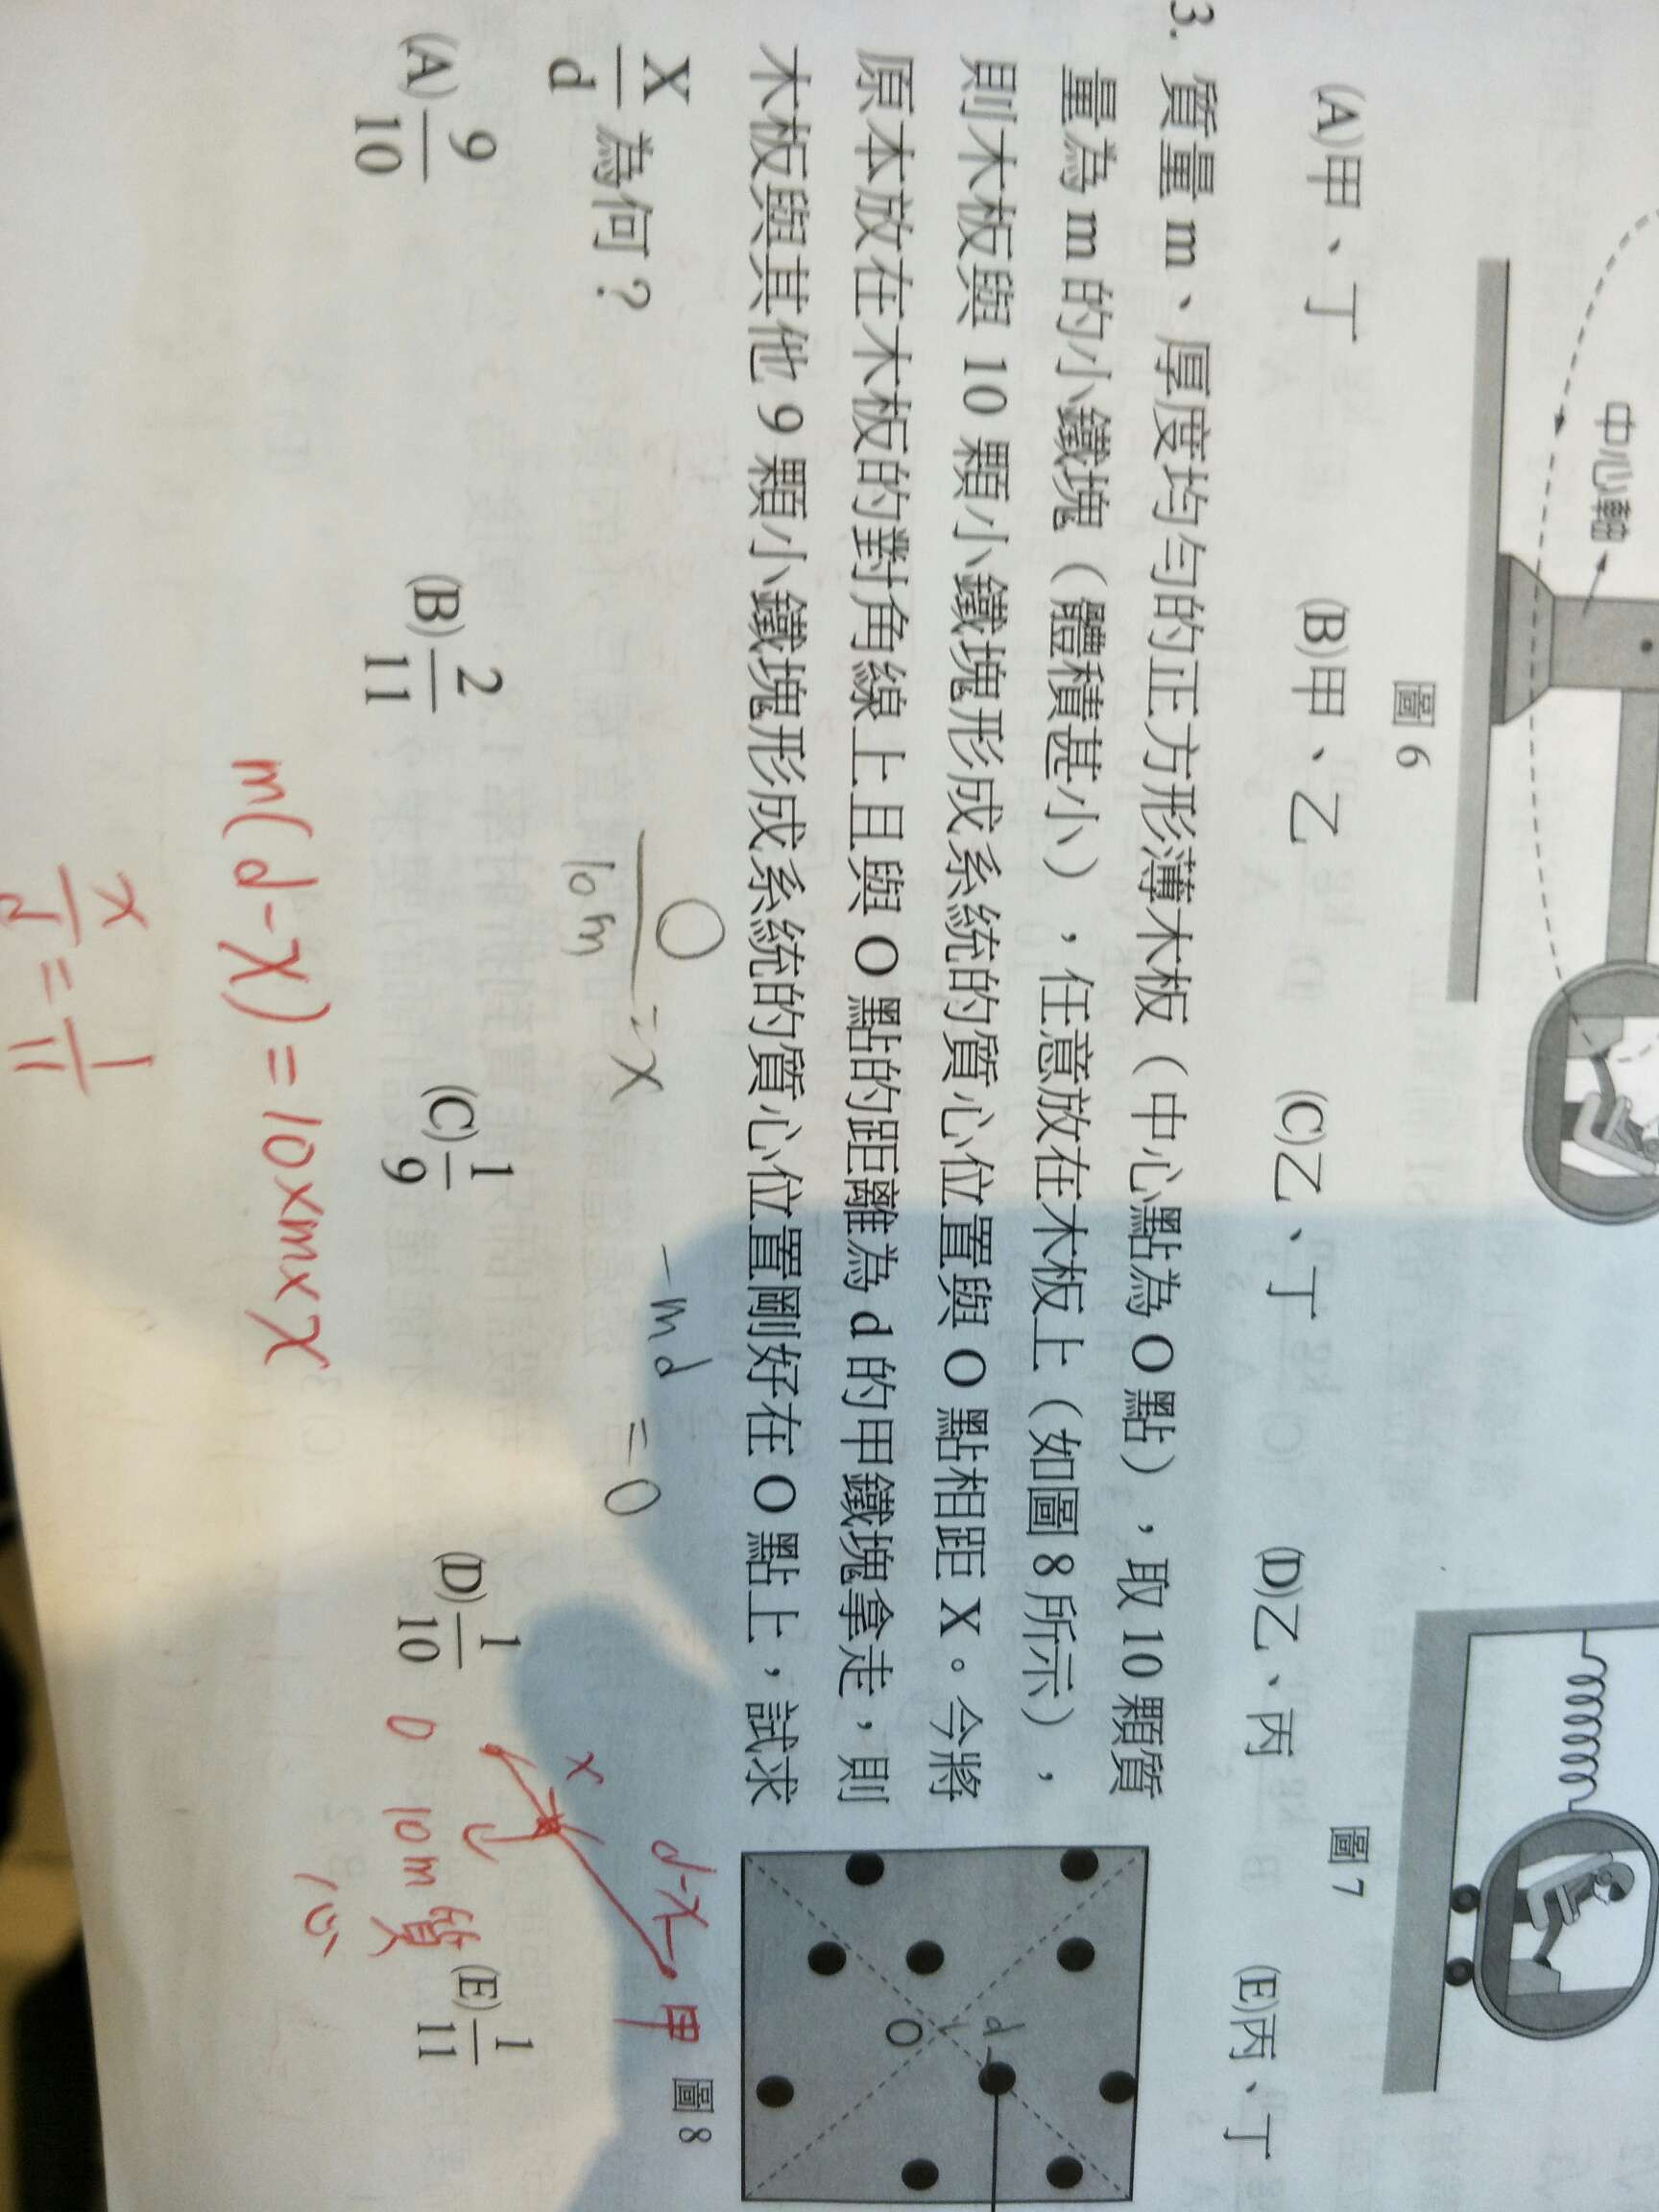 中心軸
圖 6
圖 7
(A)甲、丁 (B)甲、乙 (C)乙、丁 (D)乙、丙 (E)丙、丁
3. 質量 m、厚度均勻的正方形薄木板（中心點為 O 點），取 10 顆質
量為 m 的小鐵塊（體積甚小），任意放在木板上（如圖 8 所示），
則木板與 10 顆小鐵塊形成系統的質心位置與 O 點相距 X。今將
原本放在木板的對角線上且與 O 點的距離為 d 的甲鐵塊拿走，則
木板與其他 9 顆小鐵塊形成系統的質心位置剛好在 O 點上，試求
X/d 為何？
d
O
圖 8
(A) 9/10 (B) 2/11 (C) 1/9 (D) 1/10 (E) 1/11
O/10m = X
-md = 0
x
d-x
甲
0 10m 質
心
m(d-x) = 10xmxx
x/d = 1/11